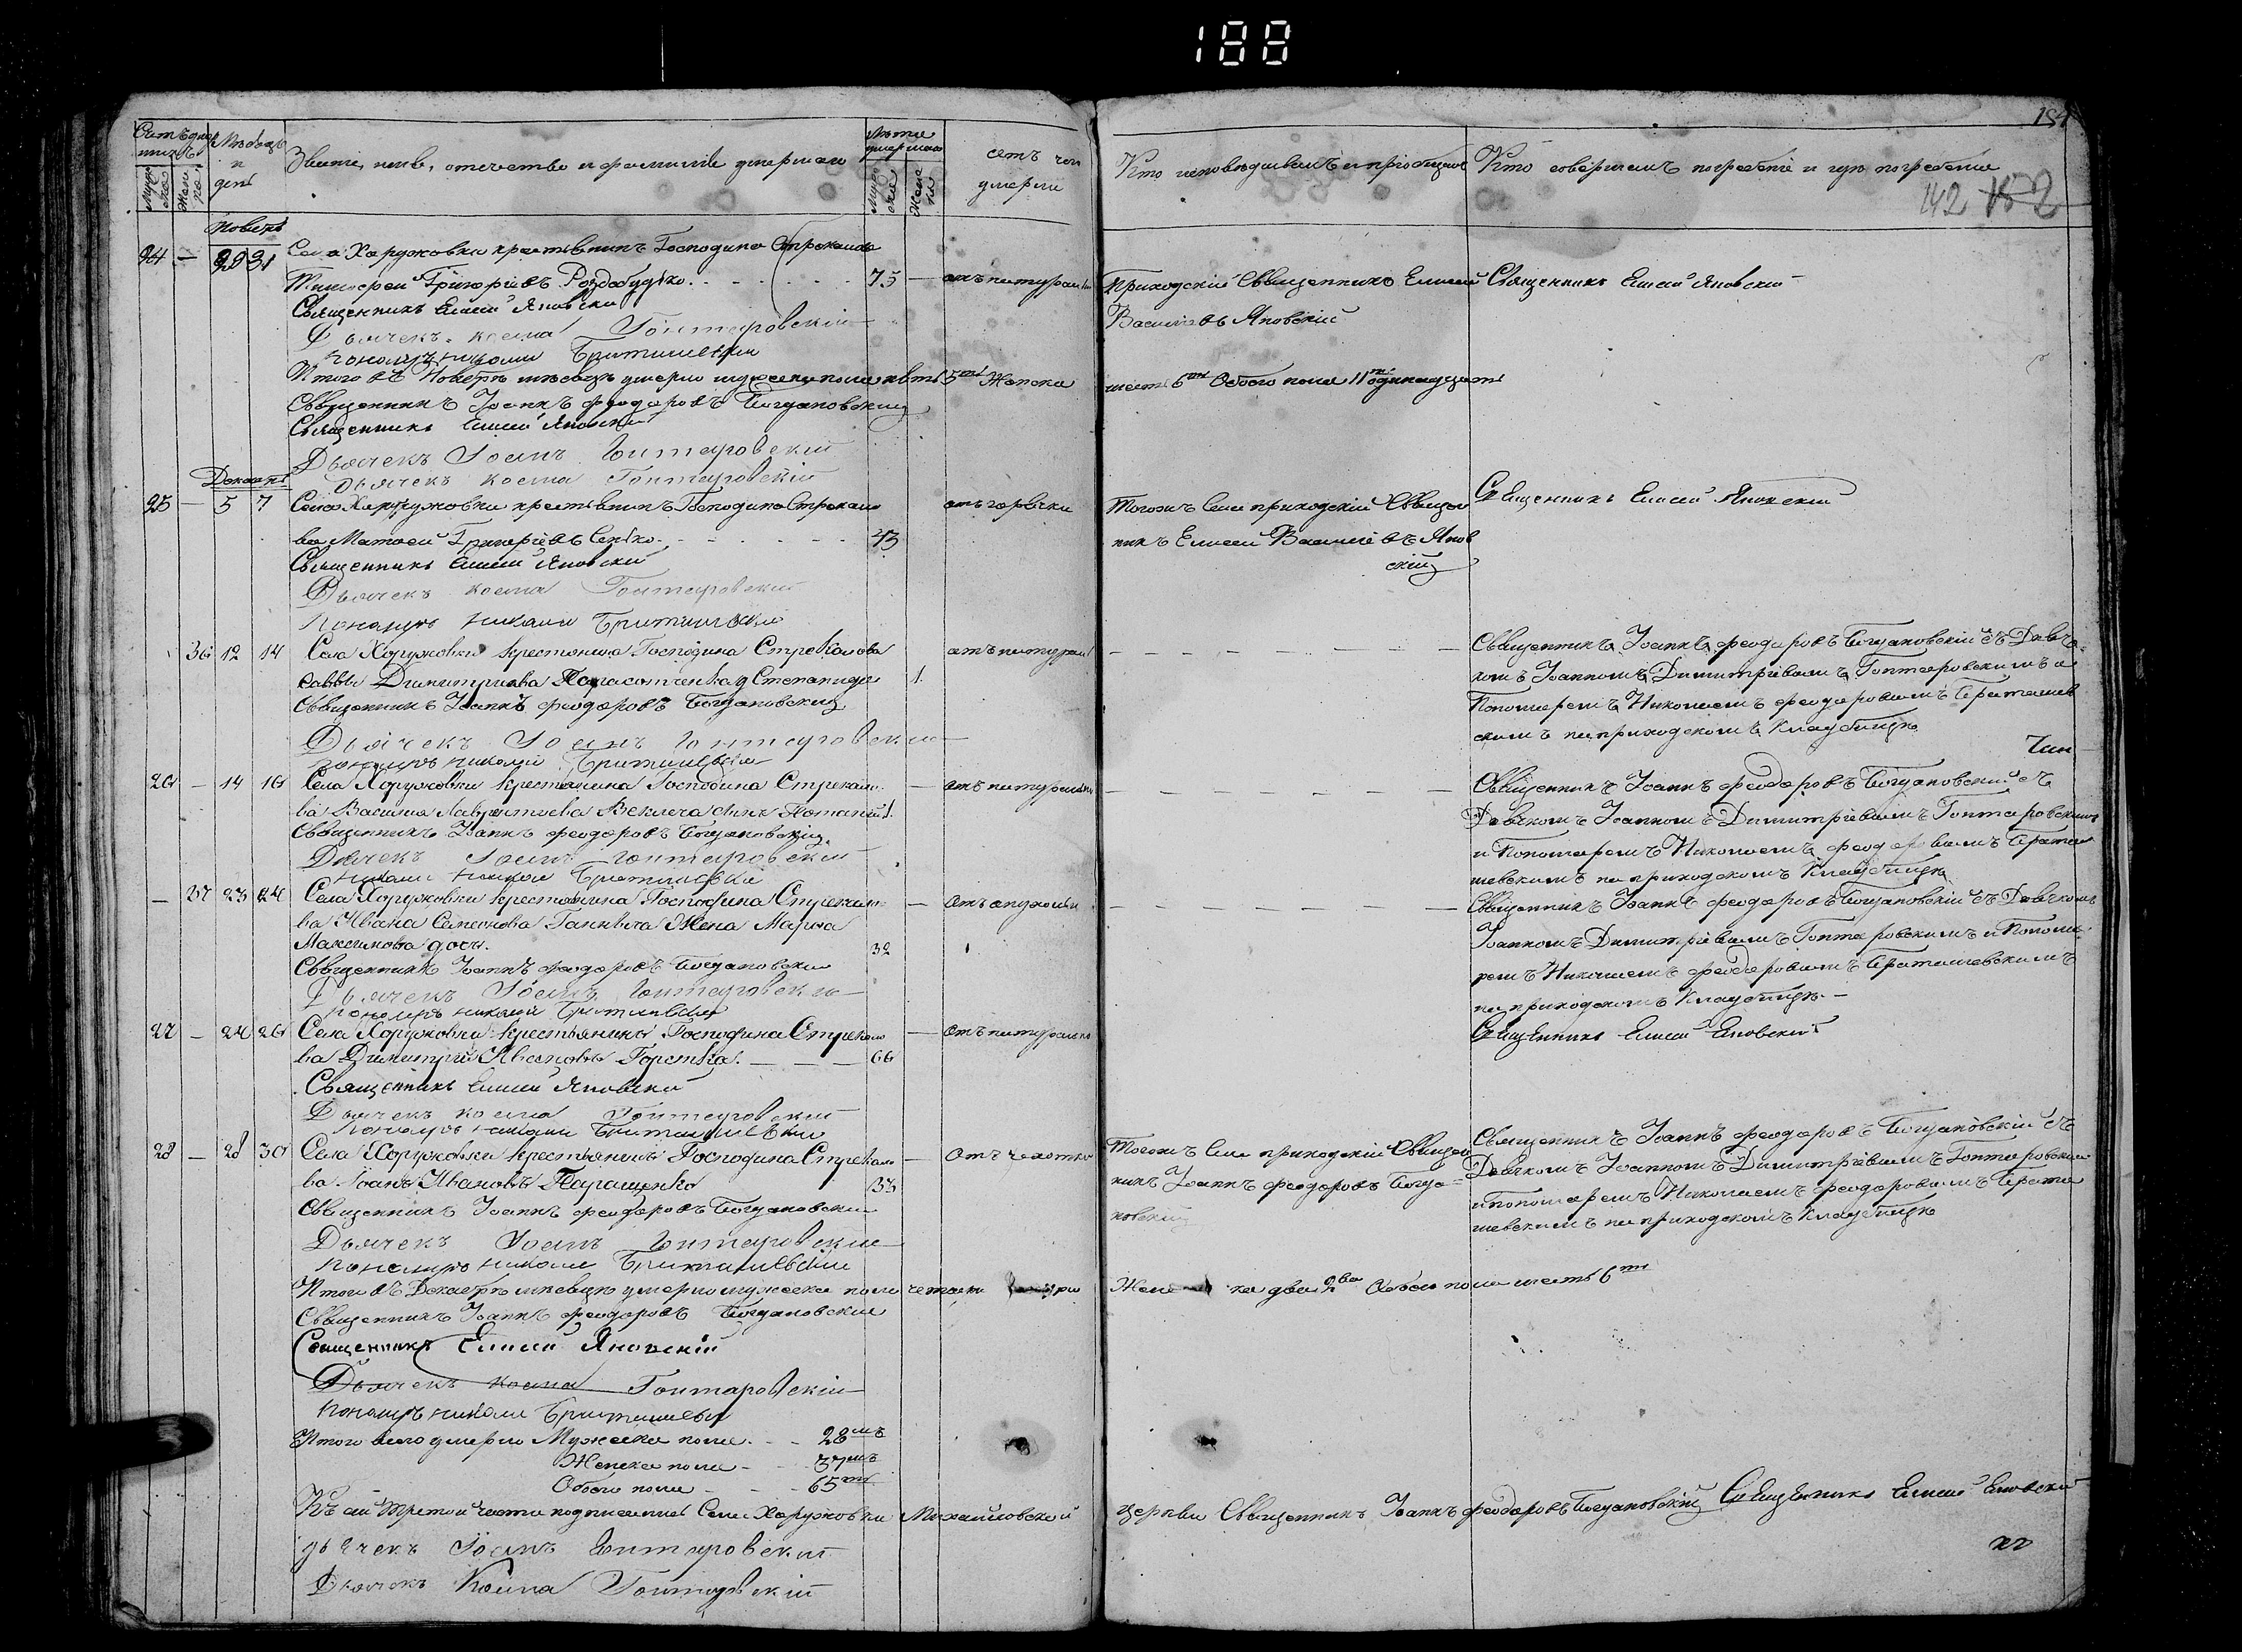 188
154
Счетъ умершихъ
Мѣсяцъ и день
Званіе, имя, отечество и фамилія умершаго
Лѣта умершаго
отъ чего умерли
Кто исповѣдывалъ и пріобщалъ
Кто совершилъ погребеніе и гдѣ погребены
142 152
Ноябрь
24 — 29 31 Села Харужовки крестьянинъ Господина Стрекалова
Тимофей Григоріевъ Роздобудько 75 —
Священникъ Елисей Яновскій
Дьячекъ Косма Гонтаровскій
Пономарь Николай
Приходскій Священникъ Елисей
Василіевъ Яновскій
Священникъ Елисей Яновскій
Итого въ Ноябрѣ мѣсяцѣ умерло мужеска пола пять 5ть Женска
шесть 6ть Обоего пола 11ть одинадцать
Священникъ Іоаннъ Феодоровъ Богдановскій
Священникъ Елисей Яновскій
Дьячекъ Іоанъ Гонтаровскій
Дьячекъ Косма Гонтаровскій
Декабрь
25 — 5 7 Села Харужовки крестьянинъ Господина Стрекало
ва Матвей Григоріевъ Сенько 43
отъ горячки
Священникъ Елисей Яновскій
Дьячекъ Косма Гонтаровскій
Пономарь Николай
Тогожъ Села приходскій Священ
никъ Елисей Василіевъ Янов
скій
Священникъ Елисей Яновскій
36 12 14 Села Хоружовки крестьянина Господина Стрекалова
Саввы Димитріева дочь Степанида 1
Священникъ Іоаннъ Феодоровъ Богдановскій
Дьячекъ Іоанъ Гонтаровскій
Пономарь Николай
Священникъ Іоаннъ Феодоровъ Богдановскій съ Дьяч
комъ Іоанномъ Димитріевымъ Гонтаровскимъ и
Пономаремъ Николаемъ Феодоровымъ
скимъ на приходскомъ Кладбищѣ
26 — 14 16 Села Хоружовки крестьянина Господина Стрекало
ва Василія Лаврентіева Веклича сынъ Потапій 1
Священникъ Іоаннъ Феодоровъ Богдановскій
Дьячекъ Іоанъ Гонтаровскій
Священникъ Іоаннъ Феодоровъ Богдановскій съ
Дьячкомъ Іоанномъ Димитріевымъ Гонтаровскимъ
и Пономаремъ Николаемъ Феодоровымъ
шевскимъ на приходскомъ Кладбищѣ
— 37 23 24 Села Хоружовки крестьянина Господина Стрекало
ва Ивана Семенова Жена Марія
Максимова дочь 32
Священникъ Іоаннъ Феодоровъ Богдановскій
Дьячекъ Іоанъ Гонтаровскій
Пономарь Николай
Священникъ Іоаннъ Феодоровъ Богдановскій съ Дьячкомъ
Іоанномъ Димитріевымъ Гонтаровскимъ и Понома
ремъ Николаемъ Феодоровымъ
на приходскомъ Кладбищѣ
27 — 24 26 Села Хоружовки крестьянинъ Господина Стрекало
ва Димитрій Ивановъ 66
Священникъ Елисей Яновскій
Дьячекъ Косма Гонтаровскій
Пономарь Николай
Священникъ Елисей Яновскій
28 — 28 30 Села Хоружовки крестьянинъ Господина Стрекало
ва Іоанъ Ивановъ Паращенко 33
отъ чахотки
Священникъ Іоаннъ Феодоровъ Богдановскій
Дьячекъ Іоанъ Гонтаровскій
Пономарь Николай
Тогожъ Села приходскій Священ
никъ Іоаннъ Феодоровъ Богда
новскій
Священникъ Іоаннъ Феодоровъ Богдановскій съ
Дьячкомъ Іоанномъ Димитріевымъ Гонтаровскимъ
и пономаремъ Николаемъ Феодоровымъ
шевскимъ на приходскомъ Кладбищѣ
Итого въ Декабрѣ мѣсяцѣ умерло мужеска пола четыри
Женска два 2ва Обоего пола шесть 6ть
Священникъ Іоаннъ Феодоровъ Богдановскій
Священникъ Елисей Яновскій
Дьячекъ Косма Гонтаровскій
Пономарь Николай
Итого всего умерло Мужеска пола 28мъ
Женска пола 37мъ
Обоего пола 65ть
Къ сей третой части подписались Села Харужовки Михайловской
церкви Священникъ Іоаннъ Феодоровъ Богдановскій Священникъ Елисей Яновскій
Дьячекъ Іоанъ Гонтаровскій
Дьячекъ Косма Гонтаровскій